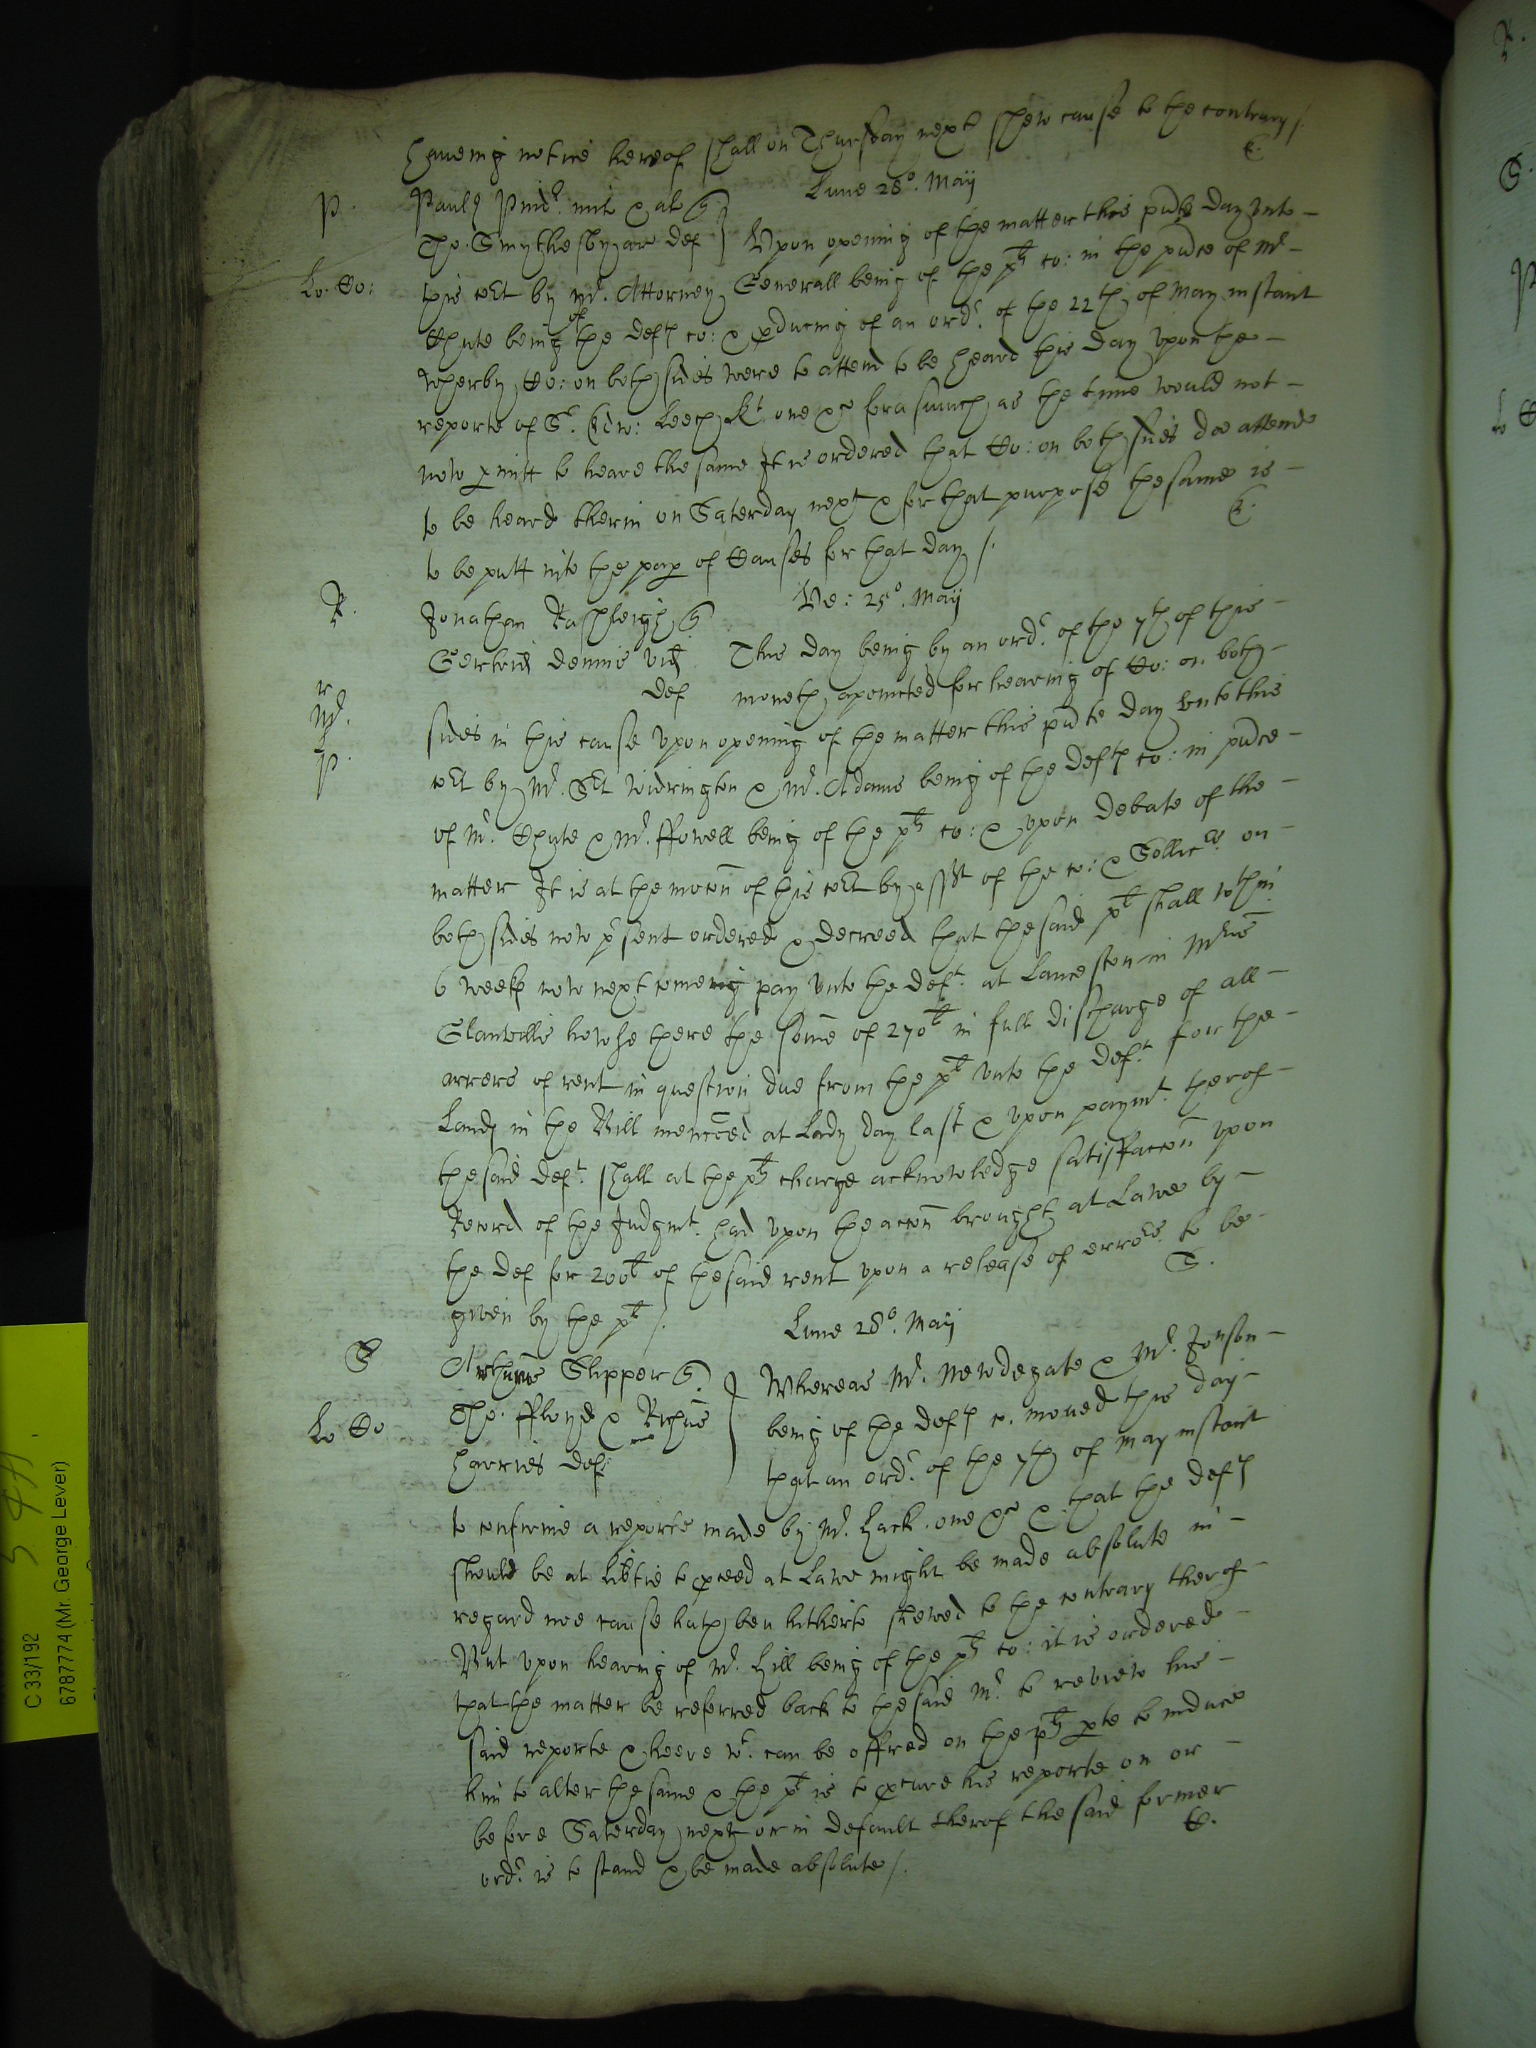 haueing notice hereof shall on Thursday next shew cause to the contrary /.
Lune 28º. Maij
P.
Paul Pind mit & al q
Tho: Smythesby ar def } Upon opening of the matter this pnte day unto
Lo: Co:
this Cot by Mr. Attorney Generall being of the plt co: in the pnce of Mr
Chute being of the deftes co: & pducing of an ordr. of the 22th of May instant
wherby Co: on both sides were to attend to be heard this day upon the
reporte of Sr. Edw: Leech Kt one &c forasmuch as the time would not
now pmitt to heare the same It is ordered that Co: on both sides doe attend
to be heard therin on Saterday next & for that purpose the same is
to be putt into the pap of Causes for that day /.
R.
Ve: 25º. Maij
Jonathan Rashleigh q
Gertrud dennis vid This day being by an ordr. of the 7th of this
def moneth apointed for hearing of Co: on both
r
Mr.
P.
sides in this cause Upon opening of the matter this pnte day unto this
Cot by Mr. Sat Widrington & Mr. Adams being of the deftes co: in pnce
of Mr. Chute & Mr. ffowell being of the plt co: & upon debate of the
matter It is at the mocon of this Cot by asst of the co: & Sollicrs. on
both sides now psent ordered & decreed that the said plt shall within
6 weekes now next comeing pay unto the deft. at Lanceston in Mris
Glanvills howse there the some of 270l in full discharge of all
arrers of rent in question due from the plt unto the deft for the
Landes in the Bill mencoed at Lady day last & upon paymt. therof
the said deft. shall at the plt charge acknowledge satisfaccon upon
Record of the Judgmt. had upon the accon brought at Lawe by
the def for 200l of the said rent upon a release of errors to be
given by the plt /.
S.
Lune 28º. Maij
S
Arthurus Slipper q.
Tho: ffloyd & Richus } Whereas Mr. Newdegate & Mr. Jonson
Lo Co
Harries def being of the deftes co. moved this day
that an ordr. of the 7th of May instant
to confirme a reporte made by Mr. Hack. one &c & that the deftes
should be at libtie to pceed at Lawe might be made absolute in
regard noe cause hath ben hitherto shewed to the contrary therof
But upon hearing of Mr. Hill being of the plt co: it is ordered
that the matter be referred back to the said Mr. to review his
said reporte & heere wt. can be offred on the plt pte to induce
him to alter the same & the plt is to pcure his reporte on or
before Saterday next or in default therof the said former
ordr. is to stand & be made absolute /.
C 33/192
6787774 (Mr. George Lever)